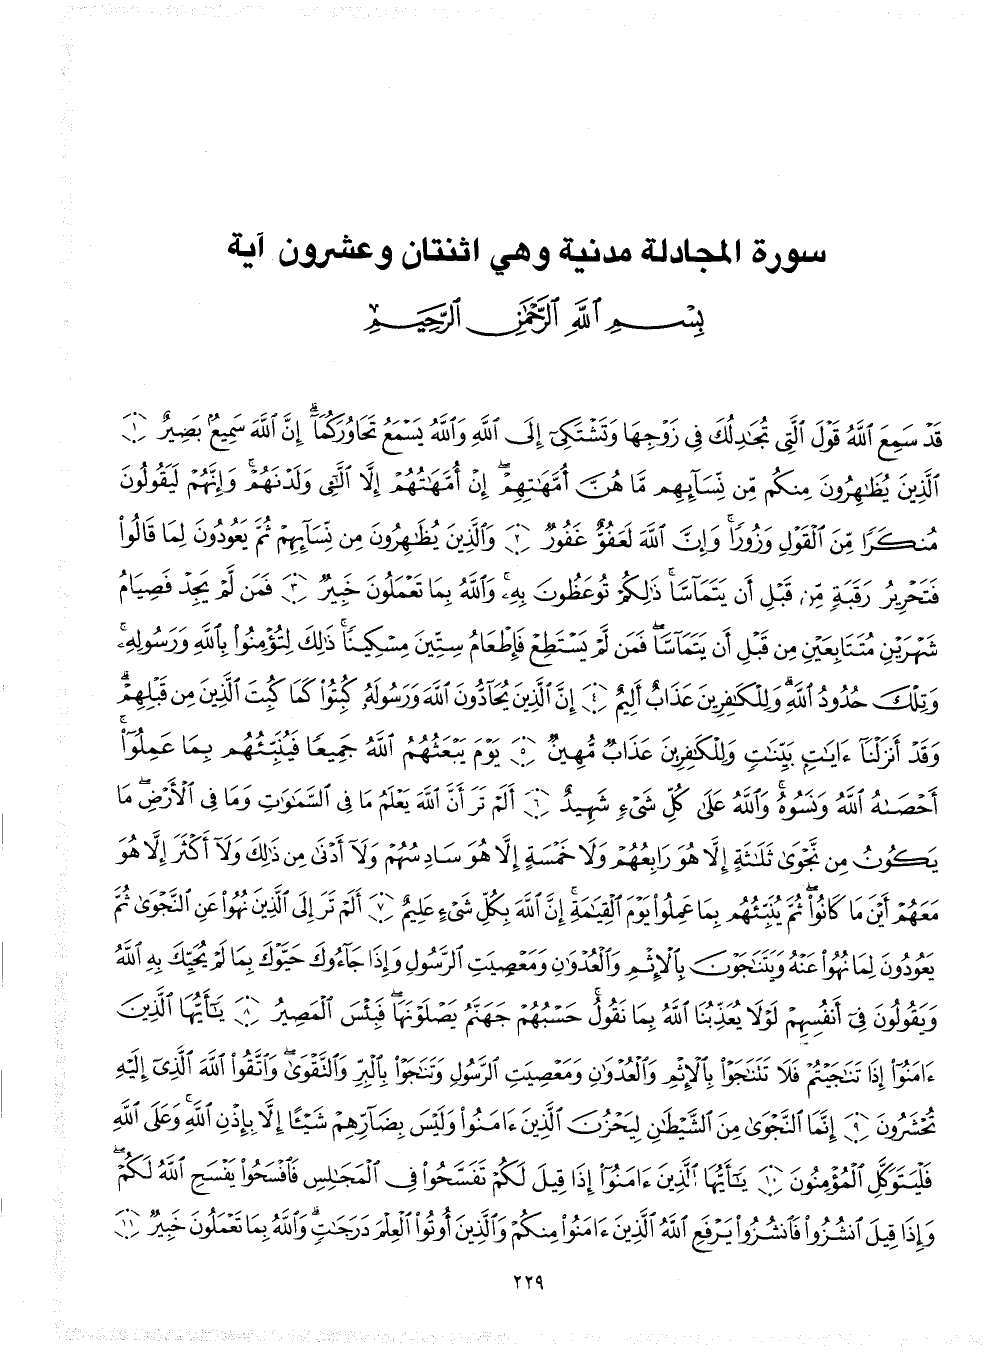 سورة المجادلة مدنية وهي اثنتان وعشرون آية
بِسْمِ ٱللَّهِ ٱلرَّحْمَٰنِ ٱلرَّحِيمِ
قَدْ سَمِعَ ٱللَّهُ قَوْلَ ٱلَّتِى تُجَٰدِلُكَ فِى زَوْجِهَا وَتَشْتَكِىٓ إِلَى ٱللَّهِ وَٱللَّهُ يَسْمَعُ تَحَاوُرَكُمَآ ۗ إِنَّ ٱللَّهَ سَمِيعٌۢ بَصِيرٌ ١
ٱلَّذِينَ يُظَٰهِرُونَ مِنكُم مِّن نِّسَآئِهِم مَّا هُنَّ أُمَّهَٰتِهِمْ ۖ إِنْ أُمَّهَٰتُهُمْ إِلَّا ٱلَّٰٓـِٔى وَلَدْنَهُمْ ۚ وَإِنَّهُمْ لَيَقُولُونَ
مُنكَرًا مِّنَ ٱلْقَوْلِ وَزُورًا ۚ وَإِنَّ ٱللَّهَ لَعَفُوٌّ غَفُورٌ ٢ وَٱلَّذِينَ يُظَٰهِرُونَ مِن نِّسَآئِهِمْ ثُمَّ يَعُودُونَ لِمَا قَالُوا۟
فَتَحْرِيرُ رَقَبَةٍ مِّن قَبْلِ أَن يَتَمَآسَّا ۚ ذَٰلِكُمْ تُوعَظُونَ بِهِۦ ۚ وَٱللَّهُ بِمَا تَعْمَلُونَ خَبِيرٌ ٣ فَمَن لَّمْ يَجِدْ فَصِيَامُ
شَهْرَيْنِ مُتَتَابِعَيْنِ مِن قَبْلِ أَن يَتَمَآسَّا ۖ فَمَن لَّمْ يَسْتَطِعْ فَإِطْعَامُ سِتِّينَ مِسْكِينًا ۚ ذَٰلِكَ لِتُؤْمِنُوا۟ بِٱللَّهِ وَرَسُولِهِۦ ۚ
وَتِلْكَ حُدُودُ ٱللَّهِ ۗ وَلِلْكَٰفِرِينَ عَذَابٌ أَلِيمٌ ٤ إِنَّ ٱلَّذِينَ يُحَآدُّونَ ٱللَّهَ وَرَسُولَهُۥ كُبِتُوا۟ كَمَا كُبِتَ ٱلَّذِينَ مِن قَبْلِهِمْ ۚ
وَقَدْ أَنزَلْنَآ ءَايَٰتٍۭ بَيِّنَٰتٍ ۚ وَلِلْكَٰفِرِينَ عَذَابٌ مُّهِينٌ ٥ يَوْمَ يَبْعَثُهُمُ ٱللَّهُ جَمِيعًا فَيُنَبِّئُهُم بِمَا عَمِلُوٓا۟ ۚ
أَحْصَىٰهُ ٱللَّهُ وَنَسُوهُ ۚ وَٱللَّهُ عَلَىٰ كُلِّ شَىْءٍ شَهِيدٌ ٦ أَلَمْ تَرَ أَنَّ ٱللَّهَ يَعْلَمُ مَا فِى ٱلسَّمَٰوَٰتِ وَمَا فِى ٱلْأَرْضِ ۖ مَا
يَكُونُ مِن نَّجْوَىٰ ثَلَٰثَةٍ إِلَّا هُوَ رَابِعُهُمْ وَلَا خَمْسَةٍ إِلَّا هُوَ سَادِسُهُمْ وَلَآ أَدْنَىٰ مِن ذَٰلِكَ وَلَآ أَكْثَرَ إِلَّا هُوَ
مَعَهُمْ أَيْنَ مَا كَانُوا۟ ۖ ثُمَّ يُنَبِّئُهُم بِمَا عَمِلُوا۟ يَوْمَ ٱلْقِيَٰمَةِ ۚ إِنَّ ٱللَّهَ بِكُلِّ شَىْءٍ عَلِيمٌ ٧ أَلَمْ تَرَ إِلَى ٱلَّذِينَ نُهُوا۟ عَنِ ٱلنَّجْوَىٰ ثُمَّ
يَعُودُونَ لِمَا نُهُوا۟ عَنْهُ وَيَتَنَٰجَوْنَ بِٱلْإِثْمِ وَٱلْعُدْوَٰنِ وَمَعْصِيَتِ ٱلرَّسُولِ وَإِذَا جَآءُوكَ حَيَّوْكَ بِمَا لَمْ يُحَيِّكَ بِهِ ٱللَّهُ
وَيَقُولُونَ فِىٓ أَنفُسِهِمْ لَوْلَا يُعَذِّبُنَا ٱللَّهُ بِمَا نَقُولُ ۚ حَسْبُهُمْ جَهَنَّمُ يَصْلَوْنَهَا ۖ فَبِئْسَ ٱلْمَصِيرُ ٨ يَٰٓأَيُّهَا ٱلَّذِينَ
ءَامَنُوٓا۟ إِذَا تَنَٰجَيْتُمْ فَلَا تَتَنَٰجَوْا۟ بِٱلْإِثْمِ وَٱلْعُدْوَٰنِ وَمَعْصِيَتِ ٱلرَّسُولِ وَتَنَٰجَوْا۟ بِٱلْبِرِّ وَٱلتَّقْوَىٰ ۖ وَٱتَّقُوا۟ ٱللَّهَ ٱلَّذِىٓ إِلَيْهِ
تُحْشَرُونَ ٩ إِنَّمَا ٱلنَّجْوَىٰ مِنَ ٱلشَّيْطَٰنِ لِيَحْزُنَ ٱلَّذِينَ ءَامَنُوا۟ وَلَيْسَ بِضَآرِّهِمْ شَيْـًٔا إِلَّا بِإِذْنِ ٱللَّهِ ۚ وَعَلَى ٱللَّهِ
فَلْيَتَوَكَّلِ ٱلْمُؤْمِنُونَ ١٠ يَٰٓأَيُّهَا ٱلَّذِينَ ءَامَنُوٓا۟ إِذَا قِيلَ لَكُمْ تَفَسَّحُوا۟ فِى ٱلْمَجَٰلِسِ فَٱفْسَحُوا۟ يَفْسَحِ ٱللَّهُ لَكُمْ ۖ
وَإِذَا قِيلَ ٱنشُزُوا۟ فَٱنشُزُوا۟ يَرْفَعِ ٱللَّهُ ٱلَّذِينَ ءَامَنُوا۟ مِنكُمْ وَٱلَّذِينَ أُوتُوا۟ ٱلْعِلْمَ دَرَجَٰتٍ ۚ وَٱللَّهُ بِمَا تَعْمَلُونَ خَبِيرٌ ١١
٢٢٩